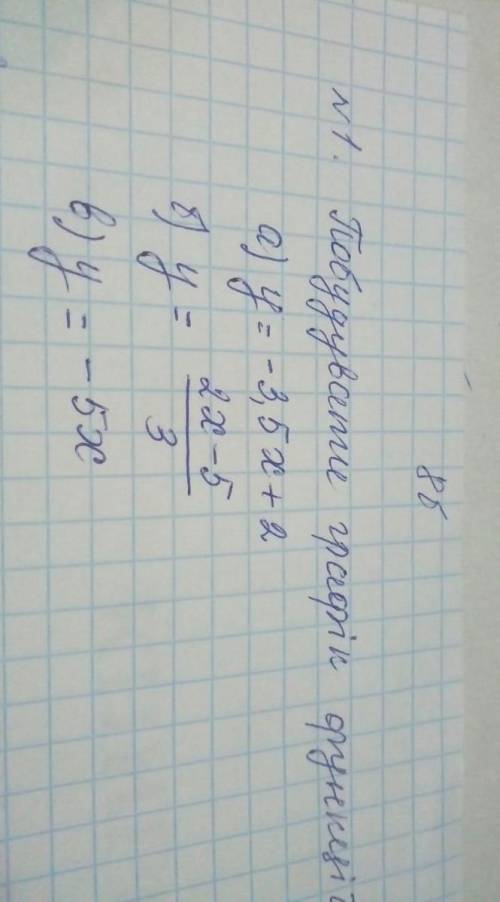 8б
№1. Побудувати графік функції
а) y = -3,5x + 2
б) y = \frac{2x - 5}{3}
в) y = - 5x